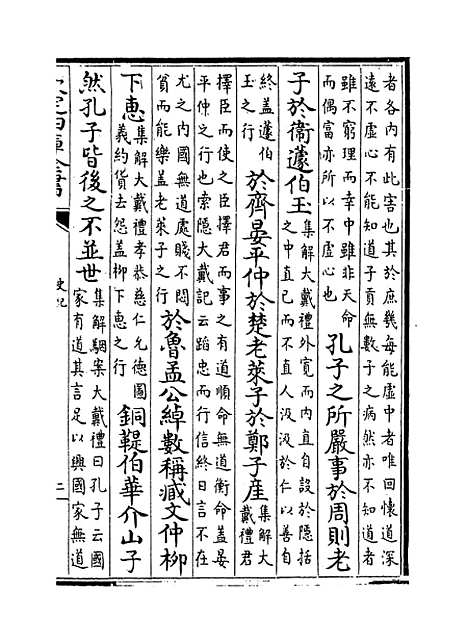 者各内有此害也其於庶幾每能虛中者唯回懷道深
遠不虛心不能知道子貢無數子之病然亦不知道者
雖不窮理而幸中雖非天命
而偶富亦所以不虛心也
孔子之所嚴事於周則老
子於衞蘧伯玉
集解大戴禮外寛而内直自設於隱括
之中直已而不直人汲汲於仁以善自
終蓋蘧伯
玉之行
於齊晏平仲於楚老萊子於鄭子産
集解大
戴禮君
擇臣而使之臣擇君而事之有道順命無道衡命蓋晏
平仲之行也索隱大戴記云蹈忠而行信終日言不在
尤之内國無道處賤不悶
貧而能樂蓋老萊子之行
於魯孟公綽數稱臧文仲柳
下惠
集解大戴禮孝恭慈仁允德圖
義約貨去怨蓋柳下惠之行
銅鞮伯華介山子
然孔子皆後之不並世
集解駰案大戴禮曰孔子云國
家有道其言足以興國家無道
欽定四庫全書
史記
二